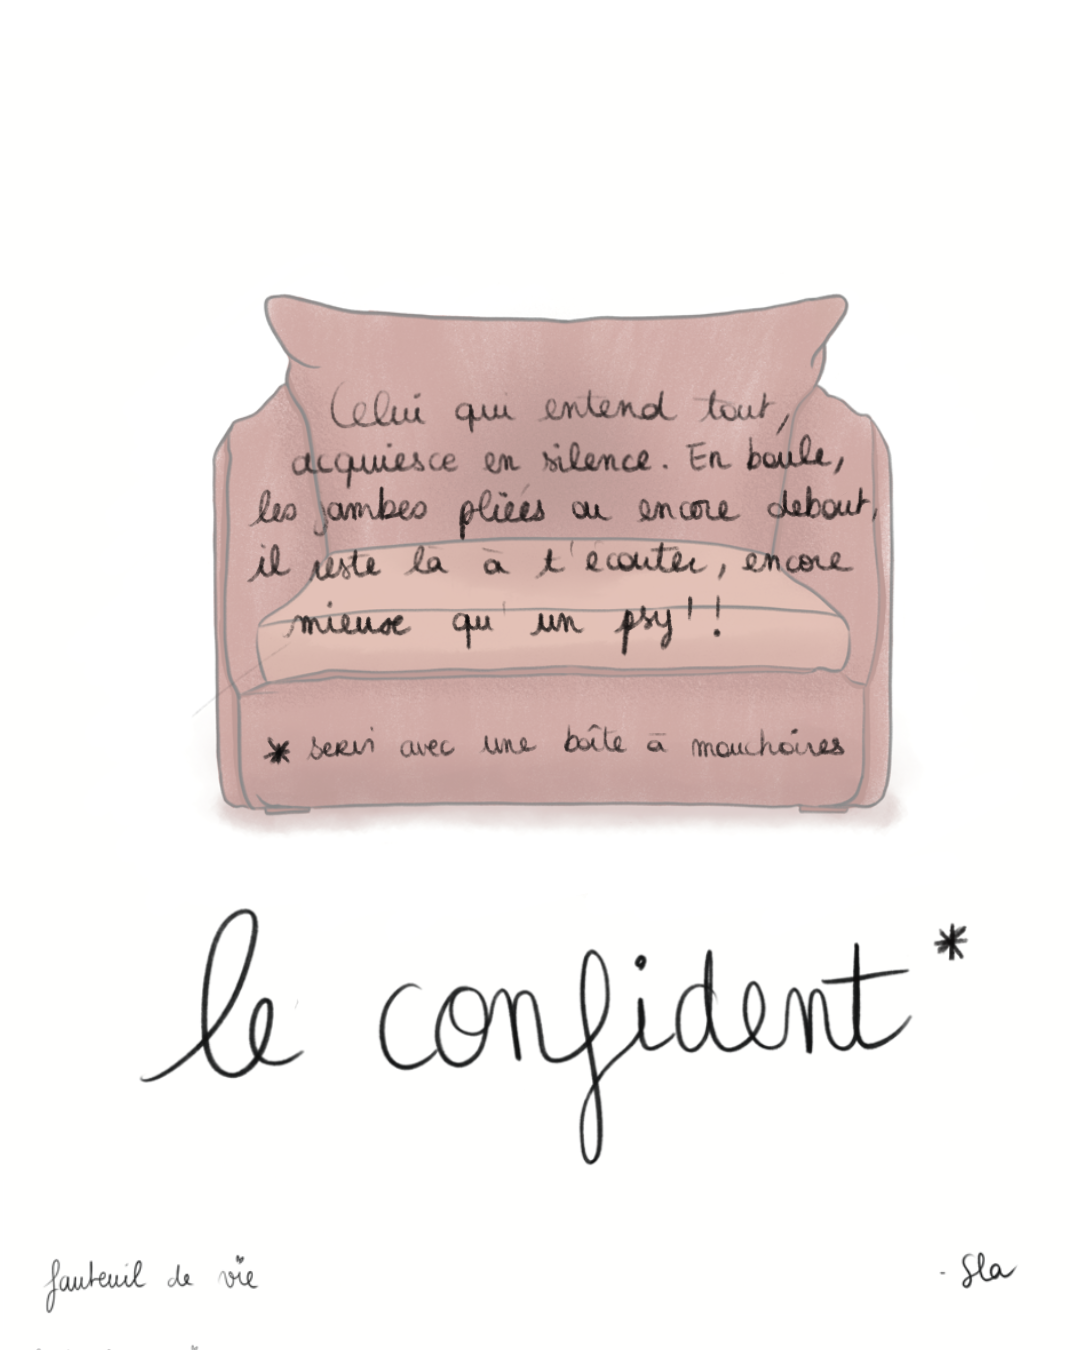 Celui qui entend tout,
acquiesce en silence. En boule,
les jambes pliées ou encore debout,
il reste là à t'écouter, encore
mieux qu'un psy !!
* servi avec une boîte à mouchoires
le confident*
fauteuil de vie
- Sla